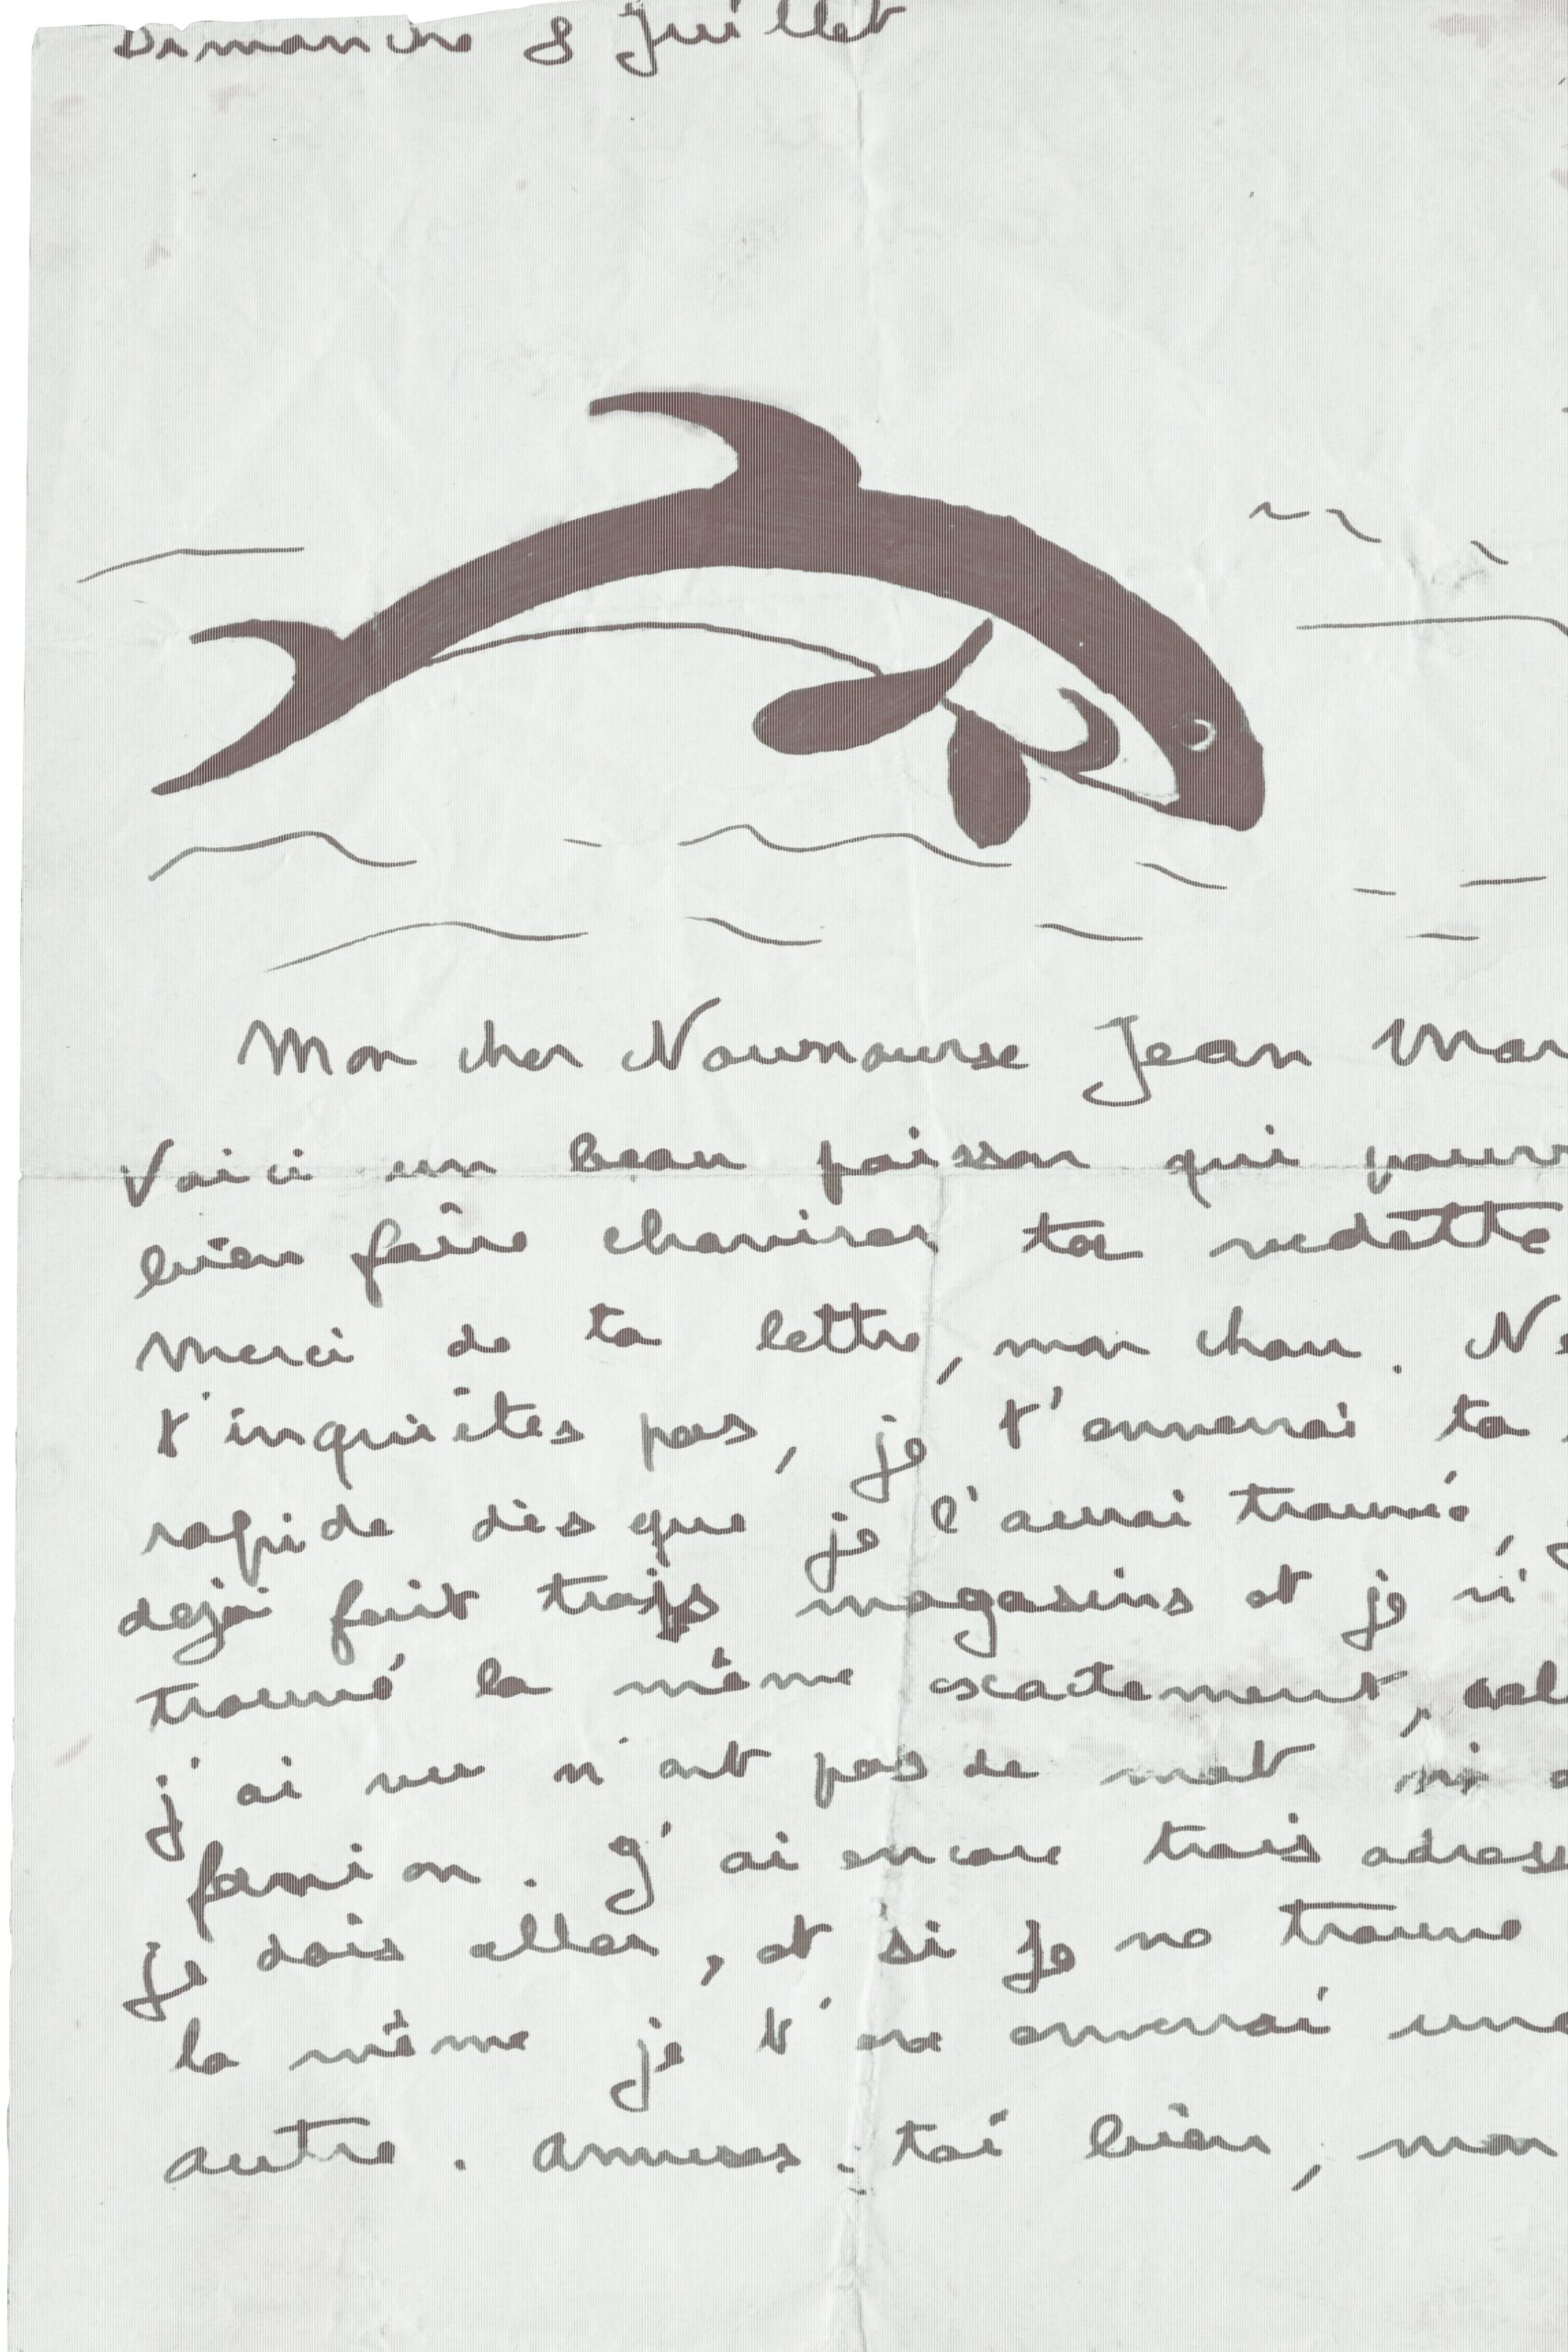 Dimanche 8 Juillet
Mon cher Nounourse Jean Mar
Voici un beau poisson qui pourr
bien faire chavirer ta vedette
Merci de ta lettre, mon chou. Ne
t'inquiètes pas, je t'enverrai ta
rapide dès que je l'aurai trouvé,
dejà fait trois magasins et je n'
trouvé la même exactement, cel
j'ai vu n'ont pas de mat ni
fanion. J'ai encore trois adress
je dois aller, et si je ne trouve
la même je t'en enverrai une
autre. Amuses-toi bien, mon